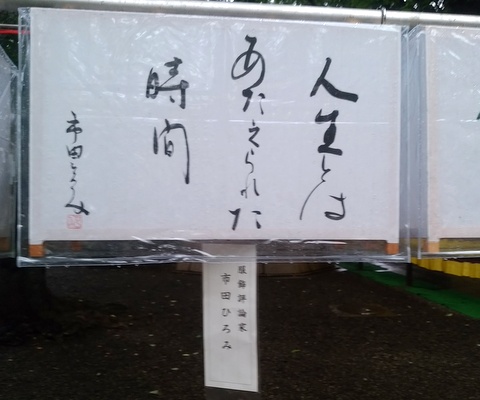 人生とは
あたえられた
時間
市田ひろみ
服飾評論家
市田ひろみ